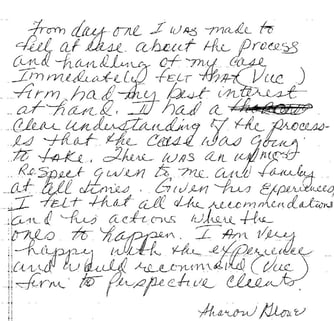 From day one I was made to
feel at ease about the process
and handling of my case
Immediately felt that (Vuc)
firm had my best interest
at hand. I had a
clear understanding of the process-
es that the case was going
to take. There was an upmost
respect given to me and family
at all times. Given his experiences,
I felt that all the recommendations
and his actions where the
ones to happen. I am very
happy with the experience
and would recommend (Vuc)
firm to perspective clients.
Sharon